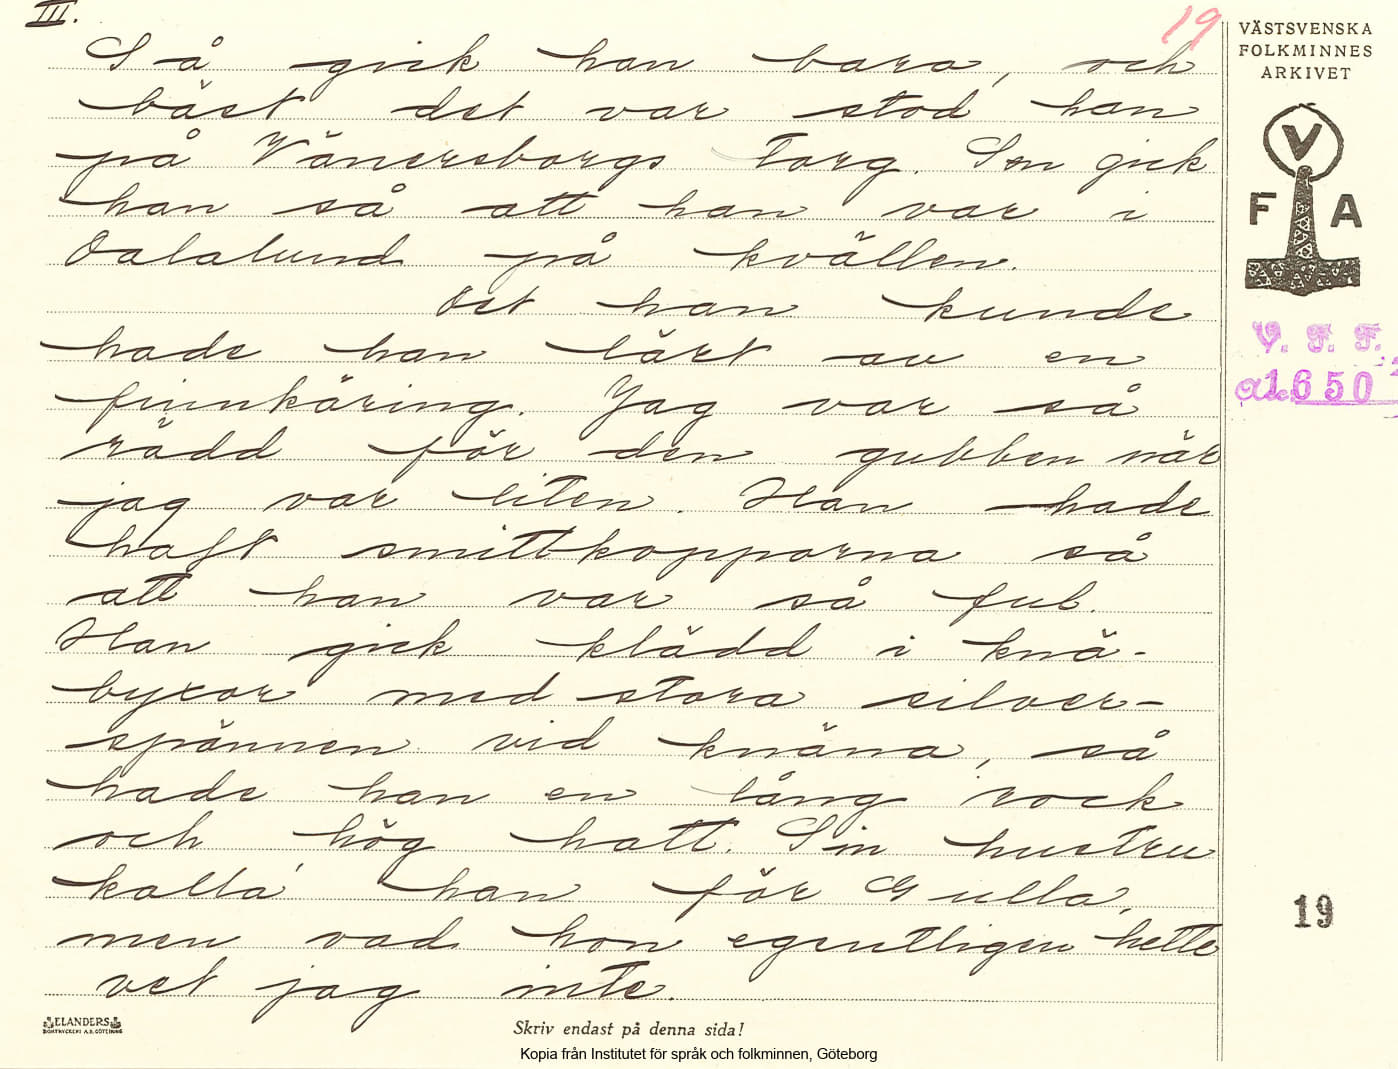 III.
19
Så gick han bara, och
bäst det var stod han
på Vänersborgs Torg. Sen gick
han så att han var i
Dalalund på kvällen.
Det han kunde
hade han lärt av en
finnkäring. Jag var så
rädd för den gubben när
jag var liten. Han hade
haft smittkopporna så
att han var så ful.
Han gick klädd i knä-
byxor med stora silver-
spännen vid knäna, så
hade han en lång rock
och hög hatt. Sin hustru
kalla' han för Gulla,
men vad hon egentligen hette
vet jag inte.
VÄSTSVENSKA
FOLKMINNES
ARKIVET
V
F A
V. F. F.
1650
19
ELANDERS
BOKTRYCKERI A.B. GÖTEBORG
Skriv endast på denna sida!
Kopia från Institutet för språk och folkminnen, Göteborg